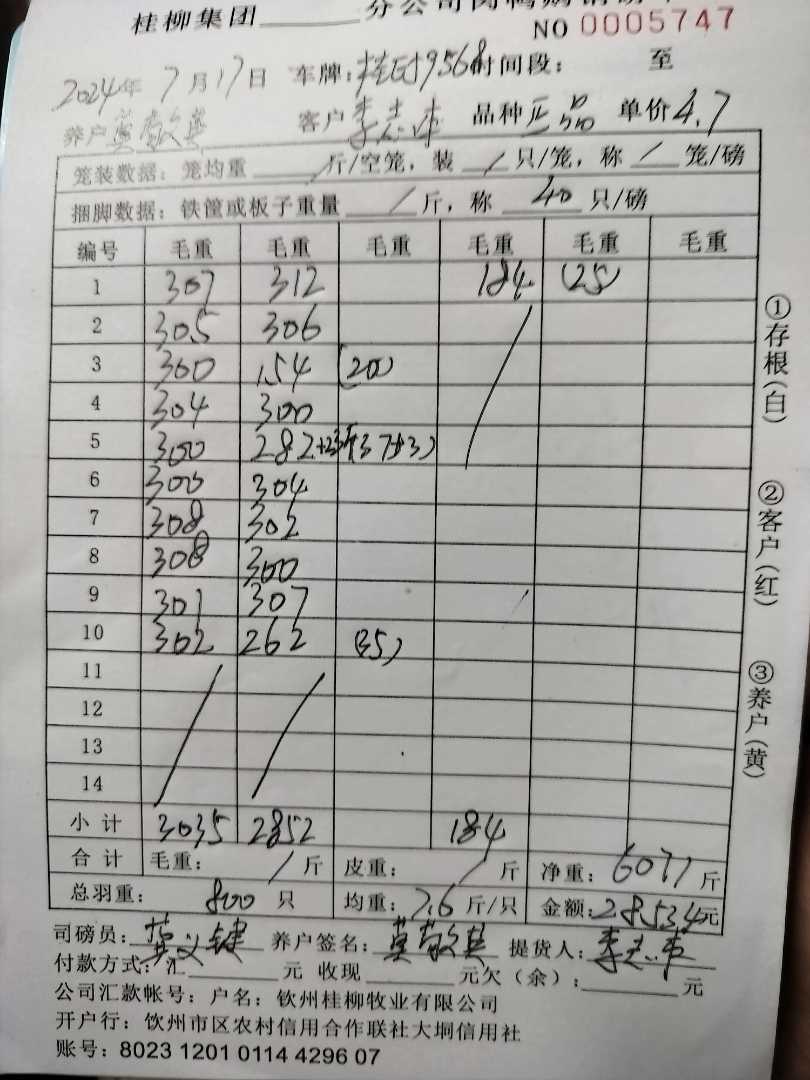 桂柳集团______分公司肉鸭购销磅单
NO 0005747
2024年7月17日 车牌:桂 9568 时间段: 至
养户 黄敬英 客户 李志 品种 正品 单价 4.7
笼装数据: 笼均重 / 斤/空笼, 装 / 只/笼, 称 / 笼/磅
捆脚数据: 铁筐或板子重量 / 斤, 称 40 只/磅
编号 毛重 毛重 毛重 毛重 毛重 毛重
1 307 312 184 (25)
2 305 306
3 300 154 (20)
4 304 300
5 300 282+23 (37+3)
6 300 304
7 308 302
8 308 300
9 301 307
10 302 262 (35)
11
12
13
14
小计 3035 2852 184
合计 毛重: / 斤 皮重: / 斤 净重: 6071 斤
总羽重: 800 只 均重: 7.6 斤/只 金额: 28534 元
司磅员: 键 养户签名: 黄敬英 提货人: 李志
付款方式: 汇______元 收现______元欠(余):______元
公司汇款帐号: 户名: 钦州桂柳牧业有限公司
开户行: 饮州市区农村信用合作联社大垌信用社
账号: 8023 1201 0114 4296 07
①存根(白)
②客户(红)
③养户(黄)